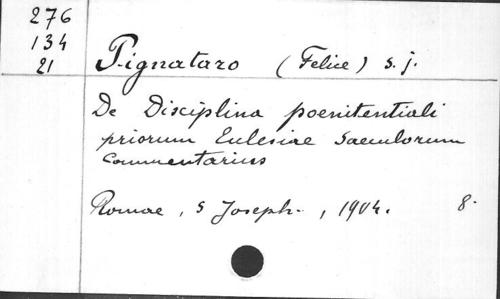 276
134
21
Pignataro (Felice) s. j.
De Disciplina poenitentiali
priorum Eclesiae saeculorum
commentarius
Romae, S Joseph., 1904. 8.